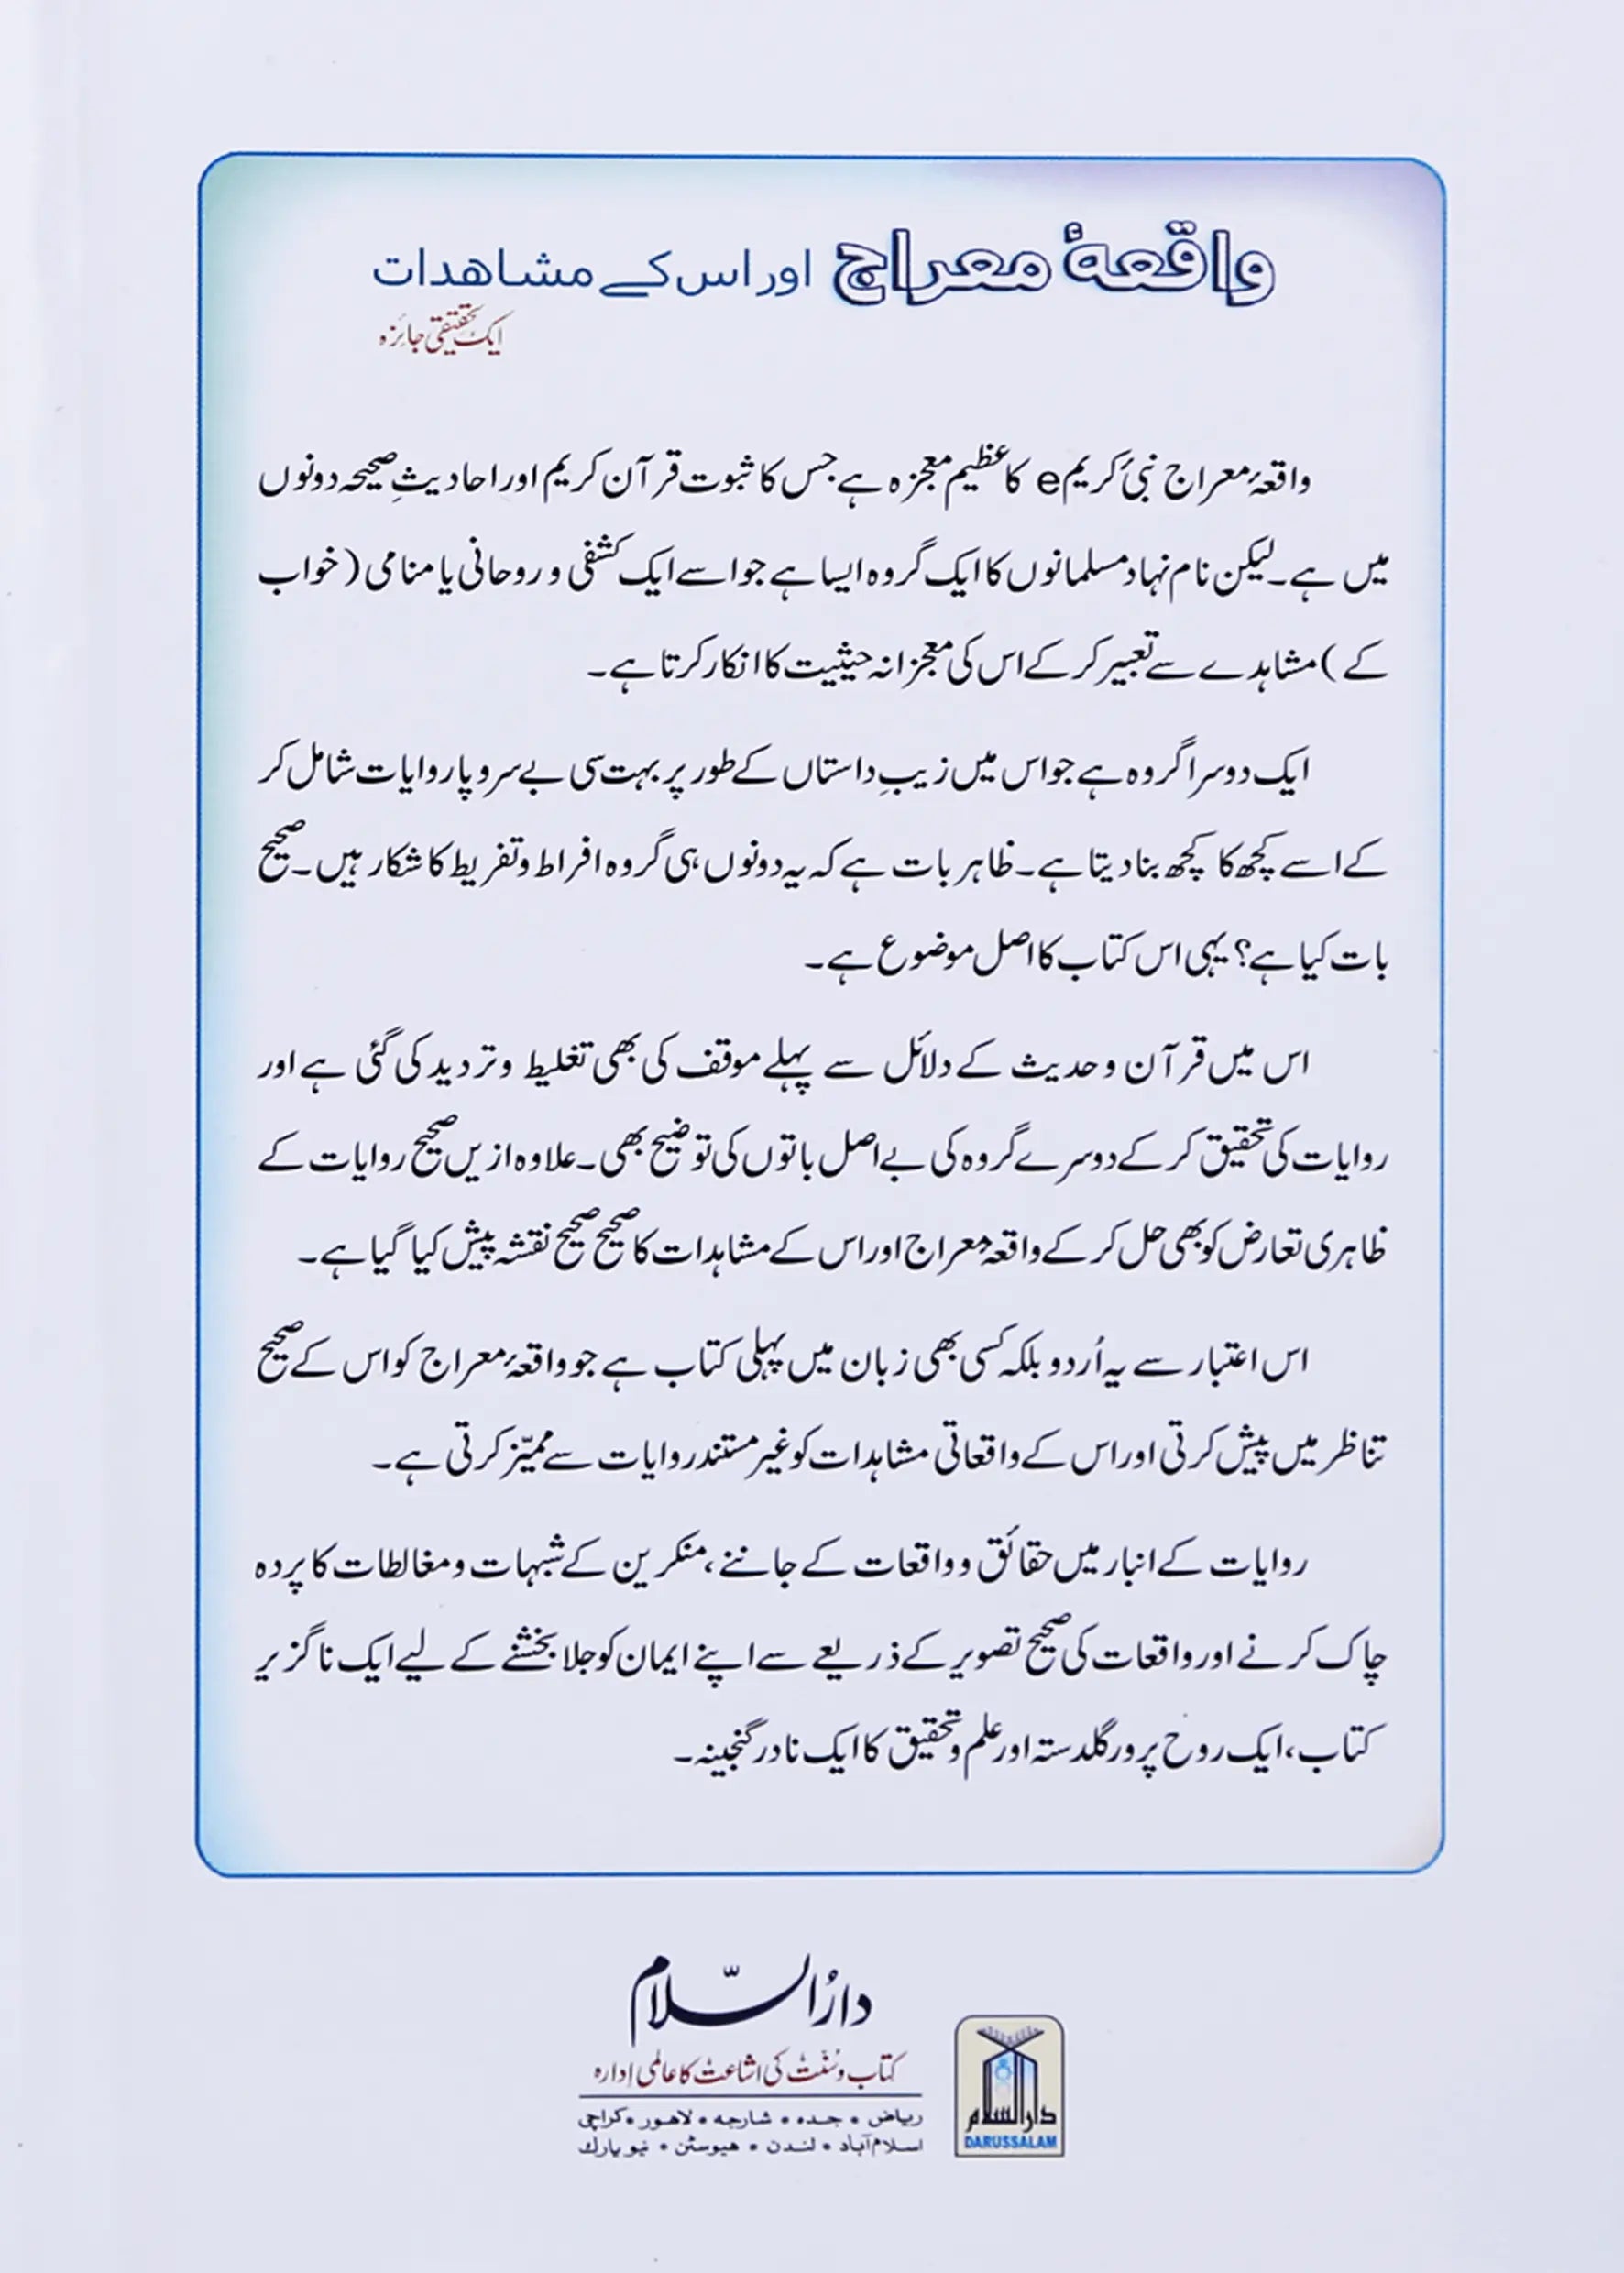 واقعۂ معراج اور اس کے مشاهدات
ایک تحقیقی جائزہ
واقعۂ معراج نبیٔ کریم e کا عظیم معجزہ ہے جس کا ثبوت قرآن کریم اور احادیثِ صحیحہ دونوں
میں ہے۔ لیکن نام نہاد مسلمانوں کا ایک گروہ ایسا ہے جو اسے ایک کشفی و روحانی یا منامی (خواب
کے) مشاہدے سے تعبیر کر کے اس کی معجزانہ حیثیت کا انکار کرتا ہے۔
ایک دوسرا گروہ ہے جو اس میں زیبِ داستاں کے طور پر بہت سی بے سروپا روایات شامل کر
کے اسے کچھ کا کچھ بنا دیتا ہے۔ ظاہر بات ہے کہ یہ دونوں ہی گروہ افراط و تفریط کا شکار ہیں۔ صحیح
بات کیا ہے؟ یہی اس کتاب کا اصل موضوع ہے۔
اس میں قرآن و حدیث کے دلائل سے پہلے موقف کی بھی تغلیط و تردید کی گئی ہے اور
روایات کی تحقیق کر کے دوسرے گروہ کی بے اصل باتوں کی توضیح بھی۔ علاوہ ازیں صحیح روایات کے
ظاہری تعارض کو بھی حل کر کے واقعۂ معراج اور اس کے مشاہدات کا صحیح صحیح نقشہ پیش کیا گیا ہے۔
اس اعتبار سے یہ اُردو بلکہ کسی بھی زبان میں پہلی کتاب ہے جو واقعۂ معراج کو اس کے صحیح
تناظر میں پیش کرتی اور اس کے واقعاتی مشاہدات کو غیر مستند روایات سے ممیّز کرتی ہے۔
روایات کے انبار میں حقائق و واقعات کے جاننے، منکرین کے شبہات و مغالطات کا پردہ
چاک کرنے اور واقعات کی صحیح تصویر کے ذریعے سے اپنے ایمان کو جلا بخشنے کے لیے ایک ناگزیر
کتاب، ایک روح پرور گلدستہ اور علم و تحقیق کا ایک نادر گنجینہ۔
دارُالسّلام
کتاب و سُنّت کی اشاعت کا عالمی اِدارہ
ریاض • جدہ • شارجه • لاهور • کراچی
اسلام آباد • لندن • هیوسٹن • نیو یارك
دارالسلام
DARUSSALAM